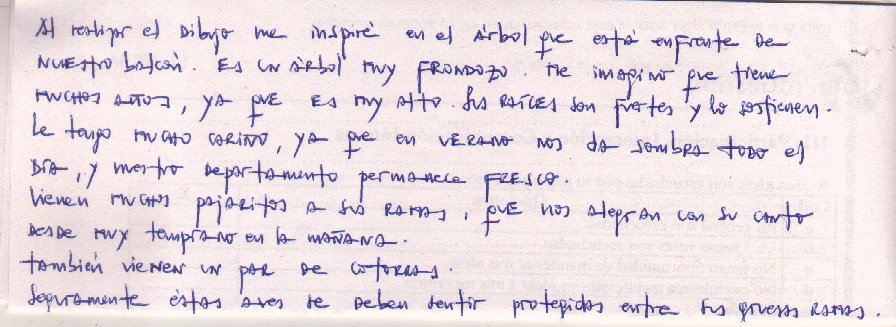 Al realizar el Dibujo me inspiré en el Árbol que está enfrente DE
NUESTRO balcón. ES UN ÁRBOL MUY FRONDOZO. Me imagino que tiene
MUCHOS AÑOS, YA QUE ES MUY Alto. Sus RAÍCES son fuertes y lo sostienen.
Le tengo MUCHO CARIÑO, YA que en VERANO NOS da SOMBRA TODO el
DÍA, y nuestro DEPARTAMENTO permanece FRESCO.
Vienen MUCHOS pajaritos A SUS RAMAS, QUE NOS alegran con su canto
DESDE MUY TEMPRANO EN LA MAÑANA.
También vienen UN PAR DE COTORRAS.
Seguramente éstas aves se DEBEN sentir protegidas entre sus gruesas RAMAS.